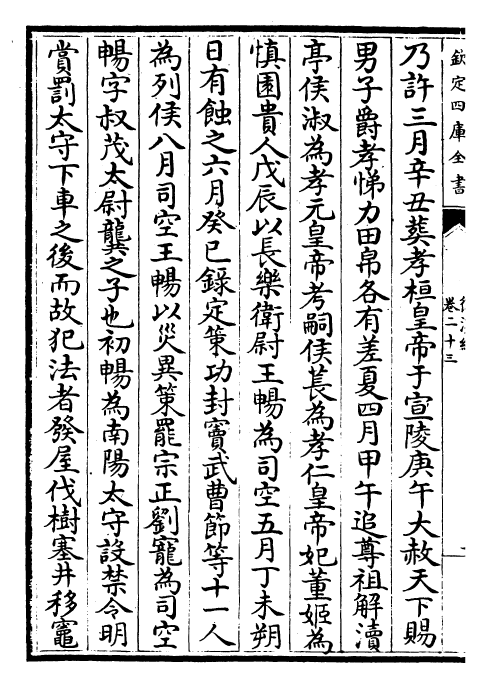 欽定四庫全書
卷二十三
乃許三月辛丑葬孝桓皇帝于宣陵庚午大赦天下賜
男子爵孝悌力田帛各有差夏四月甲午追尊祖解瀆
亭侯淑為孝元皇帝考嗣侯萇為孝仁皇帝妃董姬為
慎園貴人戊辰以長樂衛尉王暢為司空五月丁未朔
日有蝕之六月癸巳錄定策功封竇武曹節等十一人
為列侯八月司空王暢以災異策罷宗正劉寵為司空
暢字叔茂太尉龔之子也初暢為南陽太守設禁令明
賞罰太守下車之後而故犯法者發屋伐樹塞井移竈